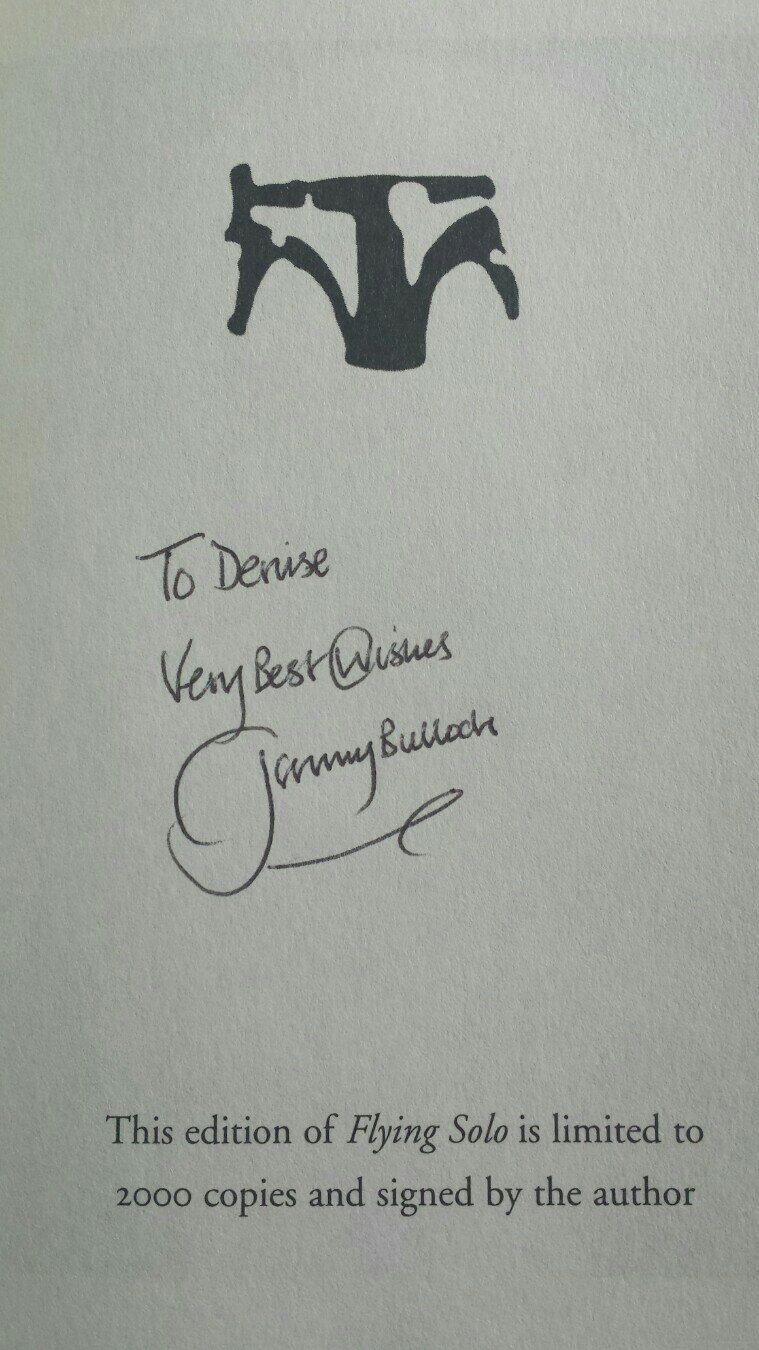 To Denise
Very Best Wishes
Jeremy Bulloch
This edition of Flying Solo is limited to
2000 copies and signed by the author